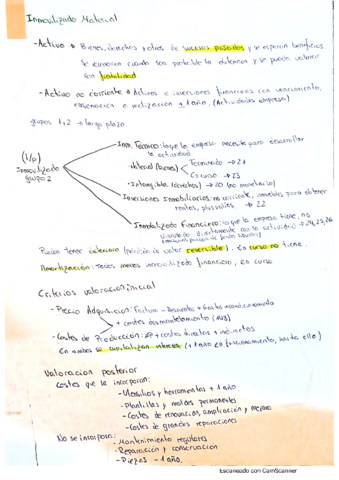 Inmovilizado Material
- Activo → Bienes, derechos y otros de sucesos pasados y se esperan beneficios
Se reconocen cuando sea probable la obtención y se puedan valorar
con fiabilidad
- Activo no corriente → Activos e inversiones financieras con vencimiento,
enajenación o realización + 1 año. (Actividades empresa)
grupos 1, 2 → largo plazo.
(l/p)
Inmovilizado
grupo 2
Inm. Técnico: lo que la empresa necesita para desarrollar
la actividad
- Material (bienes) Terminado → 21
En curso → 23
- Intangible (derechos) → 20 (no monetario)
Inversiones Inmobiliarias: no corriente, inmuebles para obtener
rentas, plusvalías → 22
Inmovilizado Financiero: lo que la empresa tiene, no
directamente con la actividad → 24, 25, 26
Pueden tener deterioro (pérdida de valor reversible). En curso no tiene.
Amortización: Todos menos inmovilizado financiero, En curso
Criterios valoración inicial
- Precio Adquisición: Factura - Descuentos + Gastos
+ costes desmantelamiento (143)
- Costes de Producción: + costes directos + indirectos
En ambos se capitalizan intereses (+ 1 año en funcionamiento, hasta ello)
Valoración posterior
Costes que se incorporan:
- Utensilios y herramientas + 1 año.
- Plantillas y moldes permanentes
- Costes de renovación, ampliación y mejora
- Costes de grandes reparaciones
No se incorpora:
- Mantenimiento regulares
- Reparación y conservación
- Piezas - 1 año.
Escaneado con CamScanner